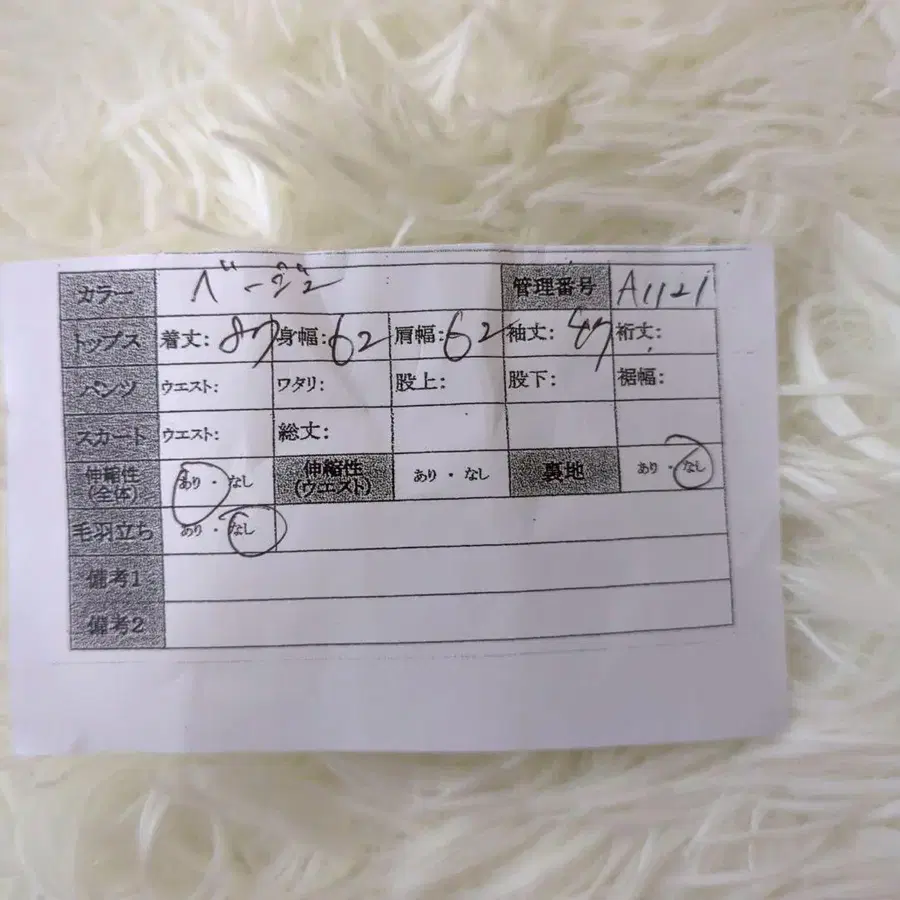 カラー ベージュ 管理番号 A1121
トップス 着丈: 87 身幅: 62 肩幅: 62 袖丈: 47 裄丈:
パンツ ウエスト: ワタリ: 股上: 股下: 裾幅:
スカート ウエスト: 総丈:
伸縮性(全体) あり・なし 伸縮性(ウエスト) あり・なし 裏地 あり・なし
毛羽立ち あり・なし
備考1
備考2